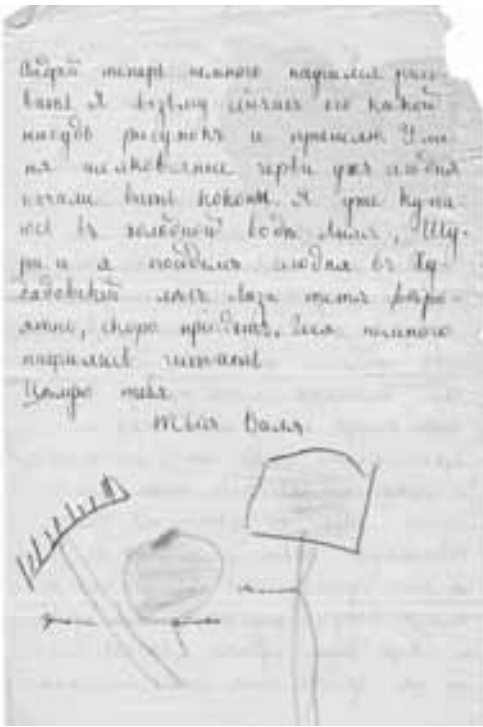 Андрей теперь немного научился рисо-
вать. Я возьму сейчас его какой
нибудь рисунокъ и пришлю. У ме-
ня шелковичные черви уже сегодня
начали вить коконы. Я уже купа-
юсь въ холодной водѣ. Лиля, Шу-
ра и я пойдемъ сегодня въ
лѣсъ. тетя вѣро-
ятно, скоро пріѣдетъ. немного
научился читать.
Цѣлую тебя
твоя Валя.